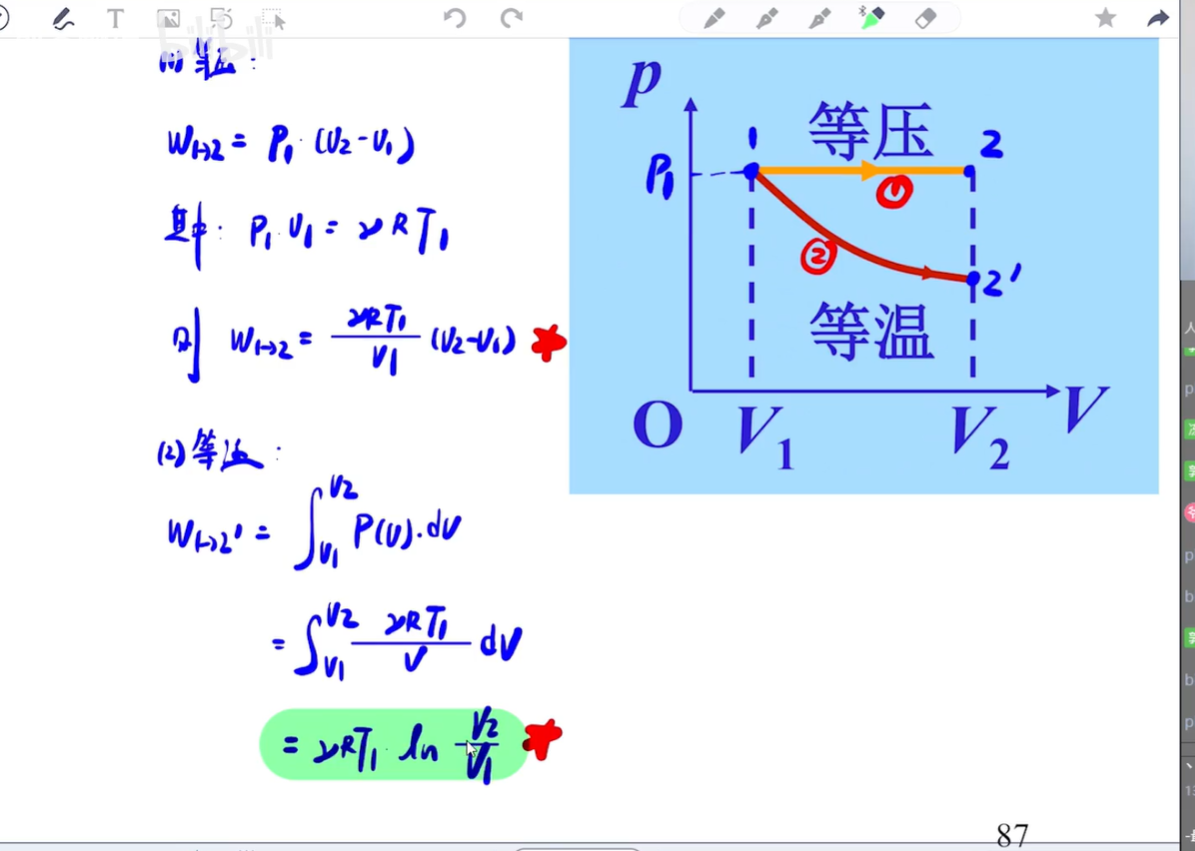 bilibili
(1) 等压:
W₁→₂ = P₁·(V₂-V₁)
其中: P₁V₁ = νRT₁
则 W₁→₂ = νRT₁/V₁ (V₂-V₁)
(2) 等温:
W₁→₂' = ∫_{V₁}^{V₂} P(V)·dV
= ∫_{V₁}^{V₂} νRT₁/V dV
= νRT₁·ln V₂/V₁
p
1 等压 2
P₁
①
②
2'
等温
O V₁ V₂ V
87